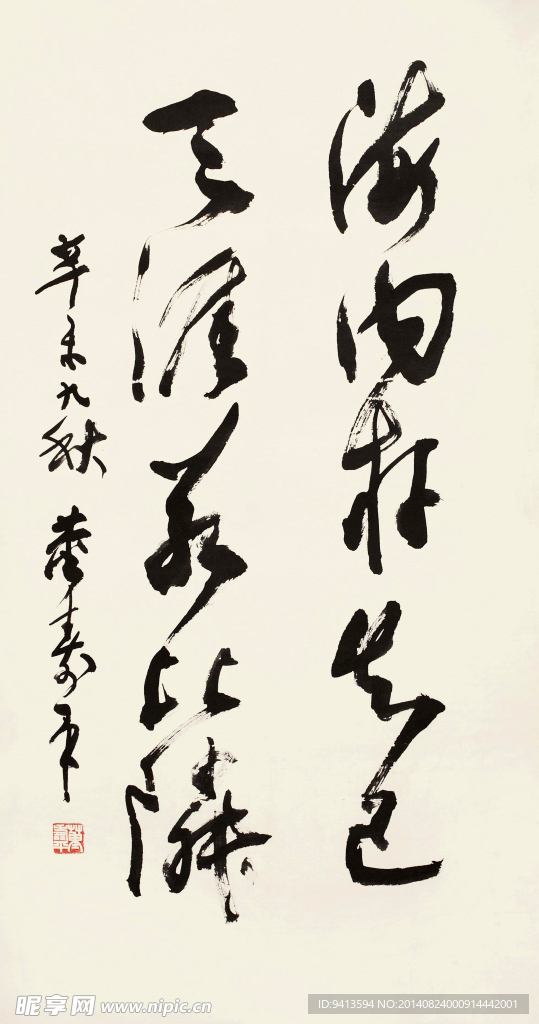 海内存知己
天涯若比邻
辛未九秋 董寿平
昵享网 www.nipic.cn
ID:9413594 NO:20140824000914442001